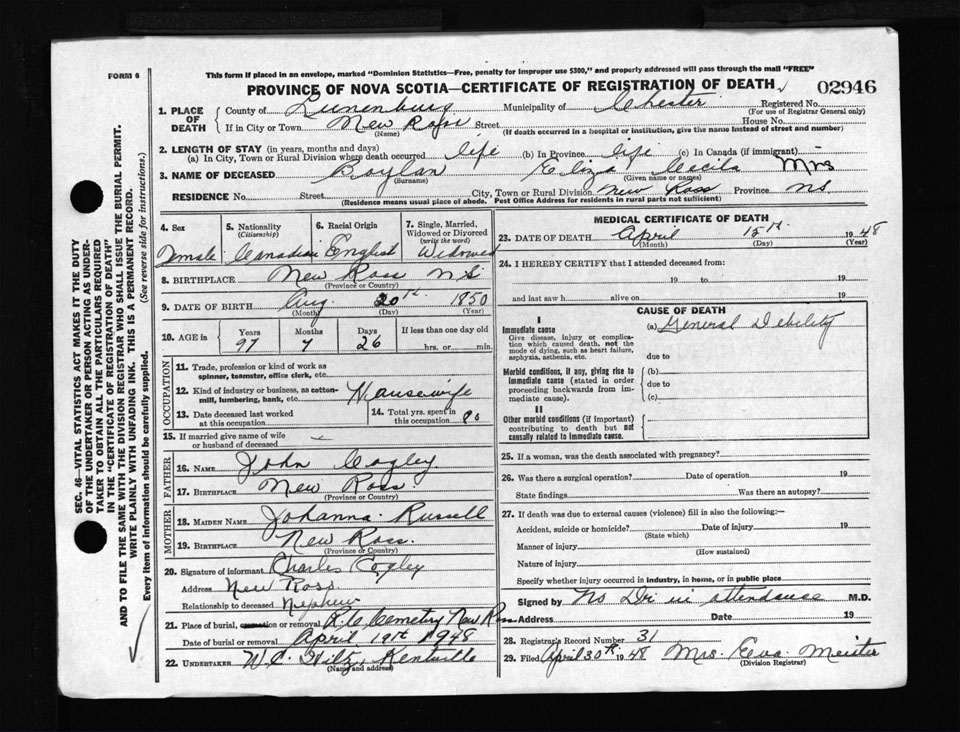 FORM 6
This form if placed in an envelope, marked "Dominion Statistics—Free, penalty for improper use $300," and properly addressed will pass through the mail "FREE"
PROVINCE OF NOVA SCOTIA—CERTIFICATE OF REGISTRATION OF DEATH
02946
1. PLACE OF DEATH
County of Lunenburg Municipality of Chester Registered No.
(For use of Registrar General only)
If in City or Town New Ross Street House No.
(Name) (If death occurred in a hospital or institution, give the name instead of street and number)
2. LENGTH OF STAY (in years, months and days)
(a) In City, Town or Rural Division where death occurred life (b) In Province life (c) In Canada (if immigrant)
3. NAME OF DECEASED Boylan Eliza Cecila Mrs
(Surname) (Given name or names)
RESIDENCE No. Street City, Town or Rural Division New Ross Province NS
(Residence means usual place of abode. Post Office Address for residents in rural parts not sufficient)
4. Sex 5. Nationality (Citizenship) 6. Racial Origin 7. Single, Married, Widowed or Divorced (write the word)
Female Canadian English Widowed
8. BIRTHPLACE New Ross N S
(Province or Country)
9. DATE OF BIRTH Aug. 20th 1850
(Month) (Day) (Year)
10. AGE in Years Months Days If less than one day old
97 7 26 hrs. or min.
OCCUPATION
11. Trade, profession or kind of work as spinner, teamster, office clerk, etc.
12. Kind of industry or business, as cotton-mill, lumbering, bank, etc. Housewife
13. Date deceased last worked at this occupation 14. Total yrs. spent in this occupation 80
15. If married give name of wife or husband of deceased —
FATHER
16. NAME John Cogley
17. BIRTHPLACE New Ross
(Province or Country)
MOTHER
18. MAIDEN NAME Johanna Russell
19. BIRTHPLACE New Ross.
(Province or Country)
20. Signature of informant Charles Cogley
Address New Ross
Relationship to deceased Nephew
21. Place of burial, cremation or removal R.C. Cemetery New Ross
Date of burial or removal April 19th 1948
22. UNDERTAKER W.C. Hiltz, Kentville
(Name and address)
MEDICAL CERTIFICATE OF DEATH
23. DATE OF DEATH April 15th 1948
(Month) (Day) (Year)
24. I HEREBY CERTIFY that I attended deceased from:
19 to 19
and last saw h alive on 19
CAUSE OF DEATH
I
Immediate cause (a) General Debility
Give disease, injury or complication which caused death, not the mode of dying, such as heart failure, asphyxia, asthenia, etc.
due to
Morbid conditions, if any, giving rise to immediate cause (stated in order proceeding backwards from immediate cause).
(b)
due to
(c)
II
Other morbid conditions (if important) contributing to death but not causally related to immediate cause.
25. If a woman, was the death associated with pregnancy?
26. Was there a surgical operation? Date of operation 19
State findings Was there an autopsy?
27. If death was due to external causes (violence) fill in also the following:—
Accident, suicide or homicide? Date of injury 19
(State which)
Manner of injury
(How sustained)
Nature of injury
Specify whether injury occurred in industry, in home, or in public place
Signed by No Dr in attendance M.D.
Address Date 19
28. Registrar's Record Number 31
29. Filed April 30th 1948 Mrs. Eva. Meister
(Division Registrar)
SEC. 46—VITAL STATISTICS ACT MAKES IT THE DUTY
OF THE UNDERTAKER OR PERSON ACTING AS UNDER-
TAKER TO OBTAIN ALL THE PARTICULARS REQUIRED
IN THE "CERTIFICATE OF REGISTRATION OF DEATH"
AND TO FILE THE SAME WITH THE DIVISION REGISTRAR WHO SHALL ISSUE THE BURIAL PERMIT.
WRITE PLAINLY WITH UNFADING INK. THIS IS A PERMANENT RECORD.
Every item of information should be carefully supplied. (See reverse side for instructions.)